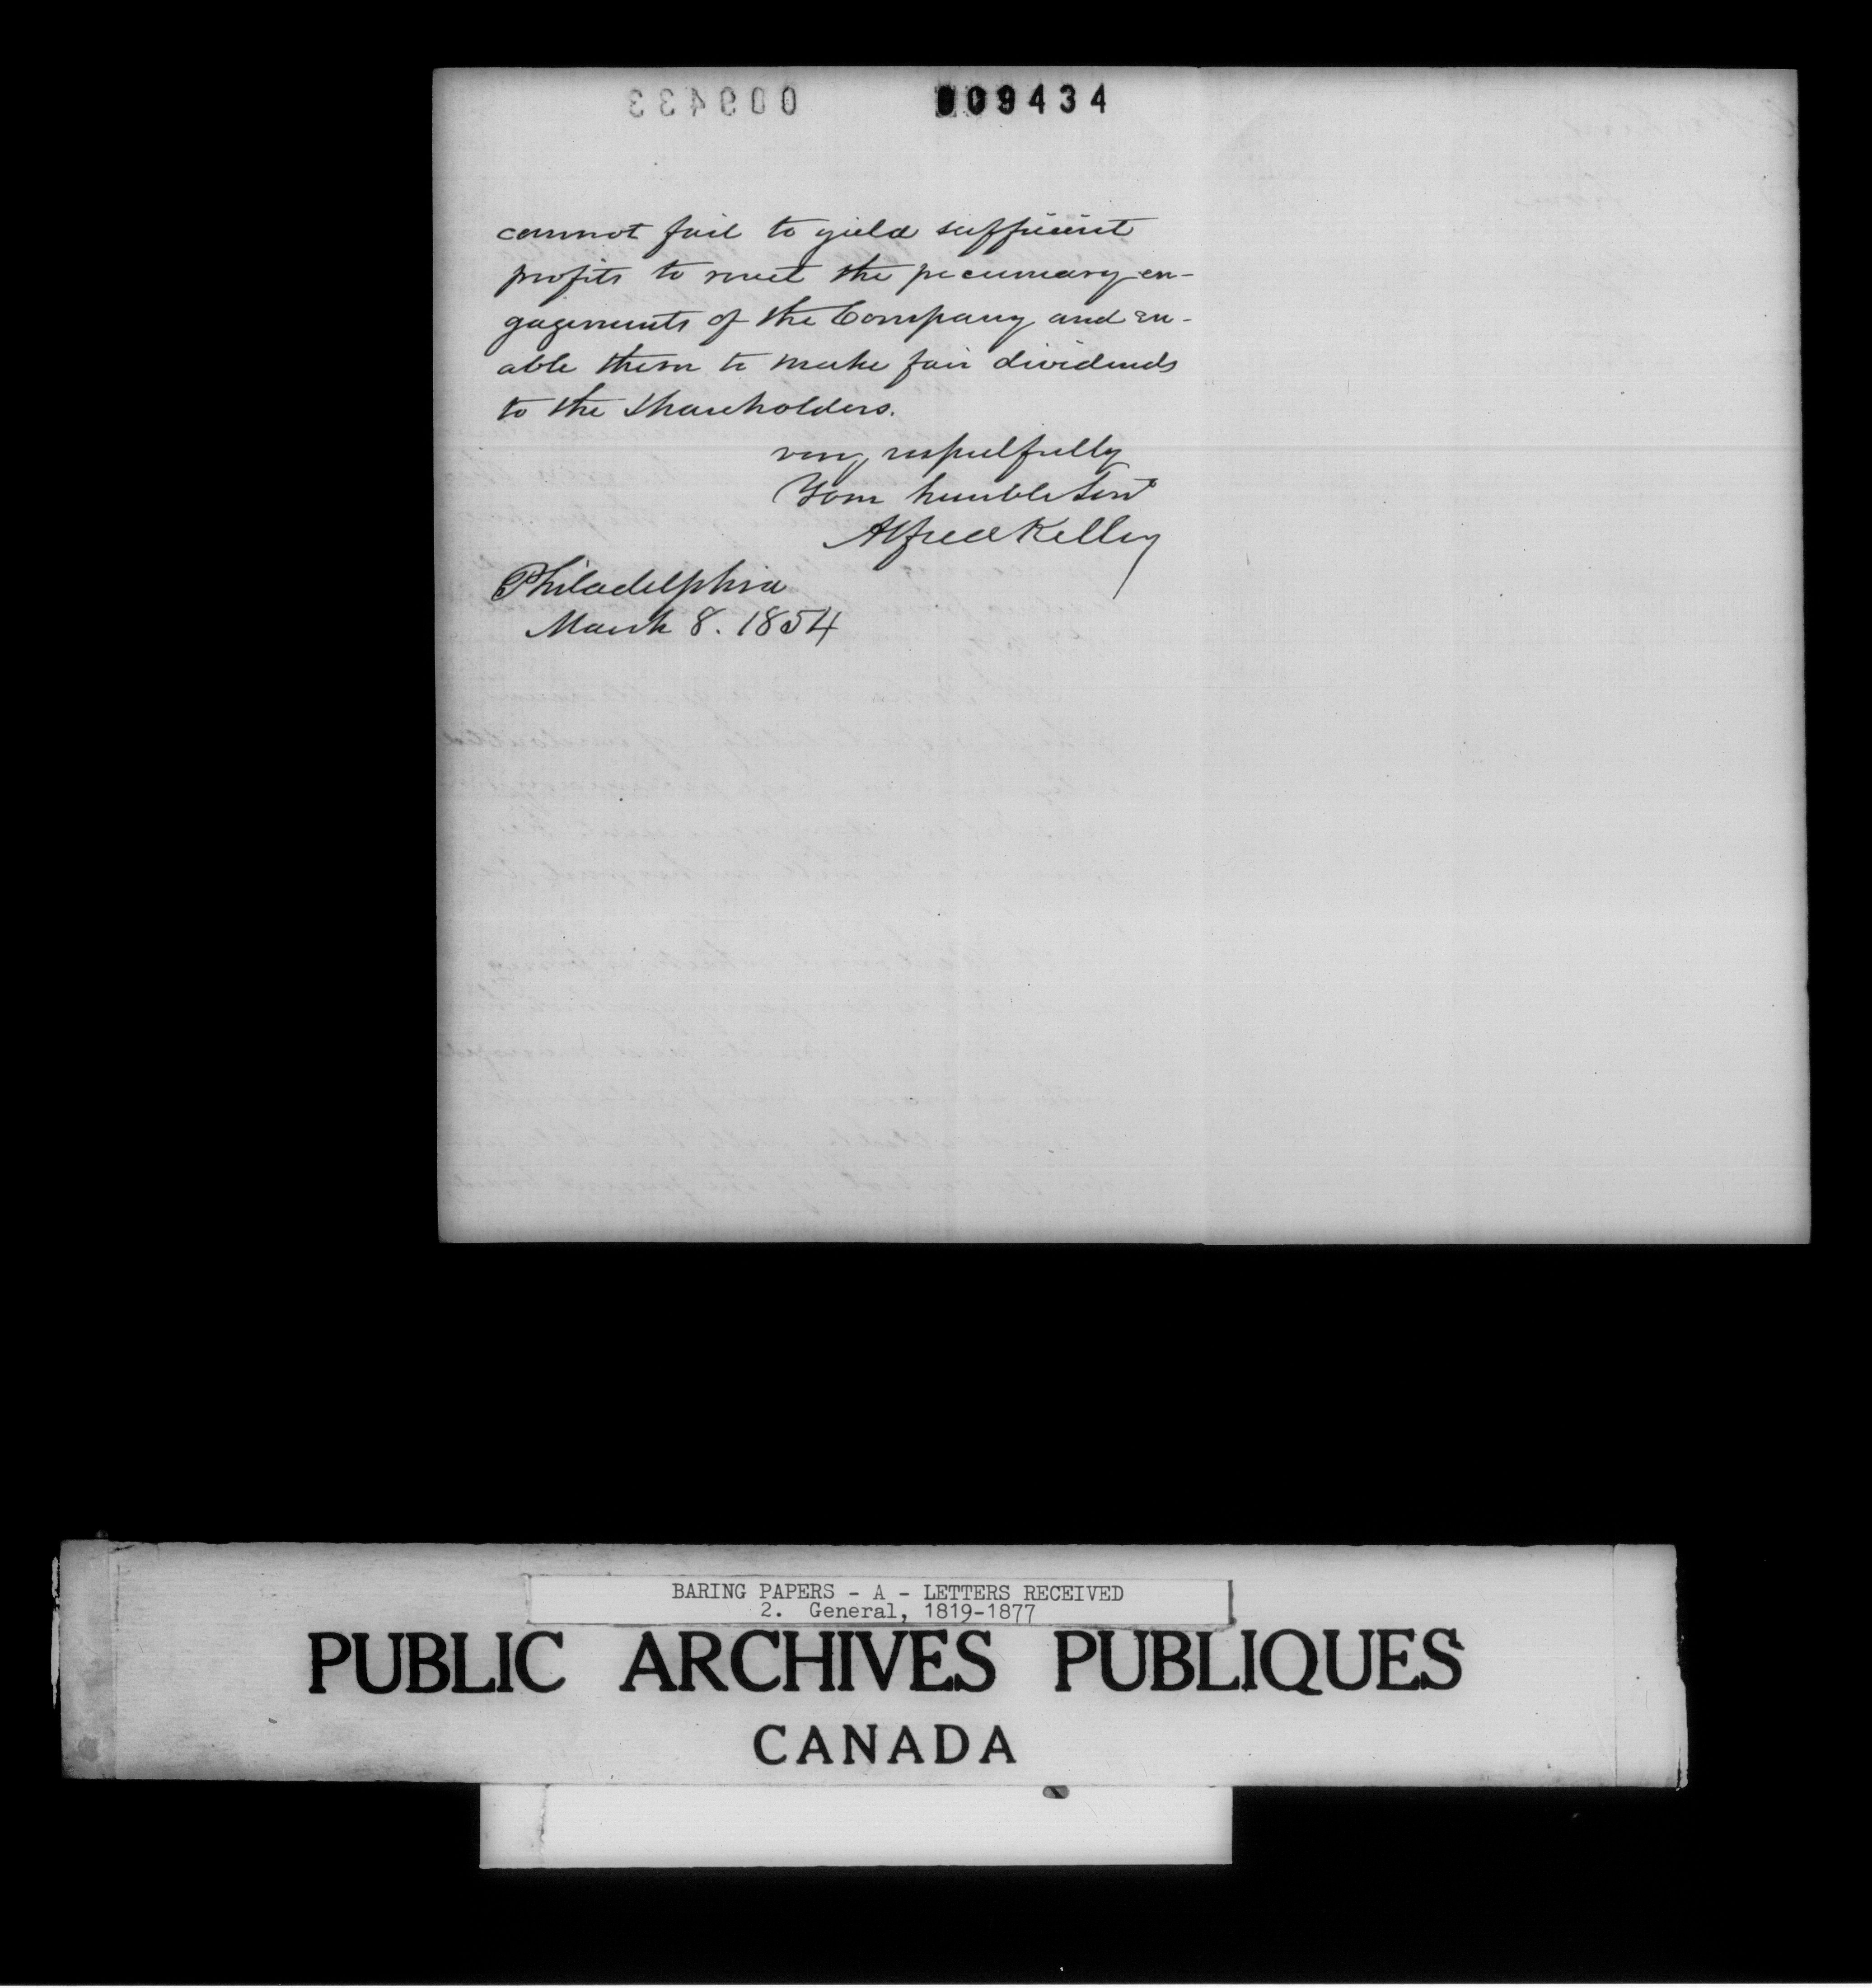 009433 009434
cannot fail to yield sufficient
profits to meet the pecuniary en-
gagements of the Company and en-
able them to make fair dividends
to the shareholders.
very respectfully
Your humble Servt
Alfred Kelley
Philadelphia
March 8. 1854
BARING PAPERS - A - LETTERS RECEIVED
2. General, 1819-1877
PUBLIC ARCHIVES PUBLIQUES
CANADA